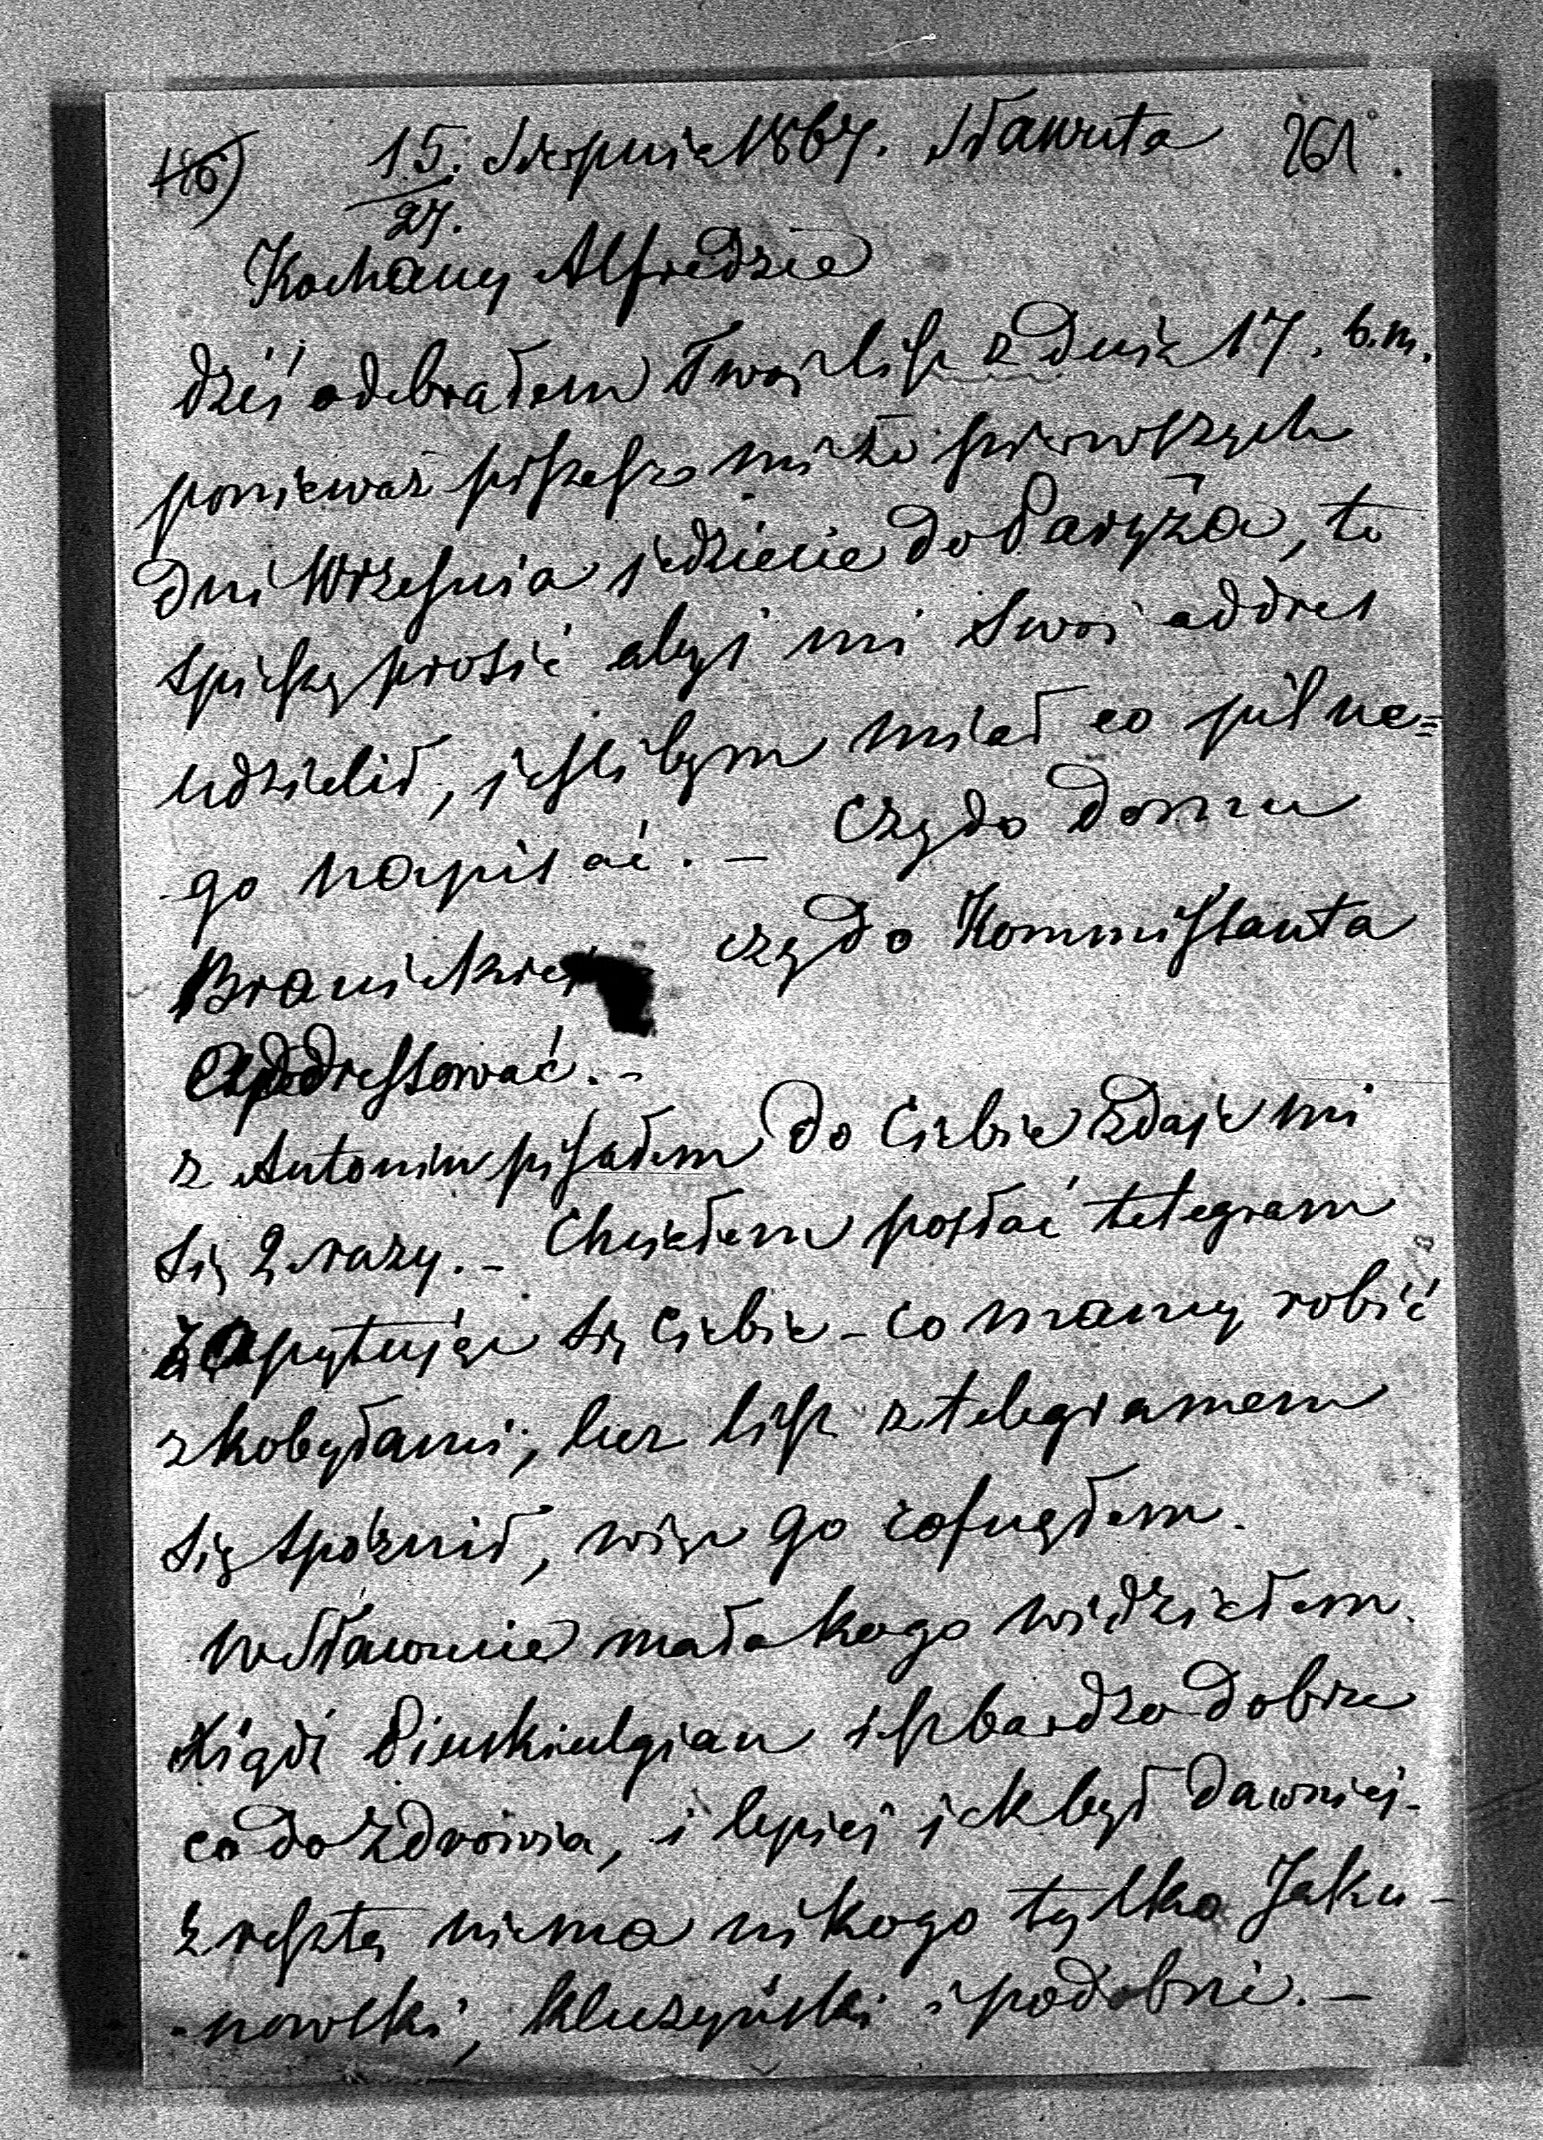 116) 15. Sierpnia 1867. Sławuta 261.
27.
Kochany Alfredzie
dziś odebrałem Twój list z dnia 17. b.m.
ponieważ piszesz mi że pierwszych
dni Września jedziecie do Paryża, to
spieszę prosić abyś mi swój addres
udzielił, jeślibym miał co pilne=
go napisać. — Czy do domu
Branickiej czy do Kommissanta
addressować. –
z Antonin pisałem do Ciebie zdaje mi
się 2 razy. – Chciałem posłać telegram
zapytując się Ciebie – co mamy robić
z kobyłami; lecz list z telegramem
się spóźnił, więc go cofnąłem.
w Sławucie mało kogo widziałem.
Xiądz jest bardzo dobrze
co do zdrowia, i lepiej jak był dawniej –
zresztą niema nikogo tylko Jaku-
nowski, Kluszyński i podobni. —